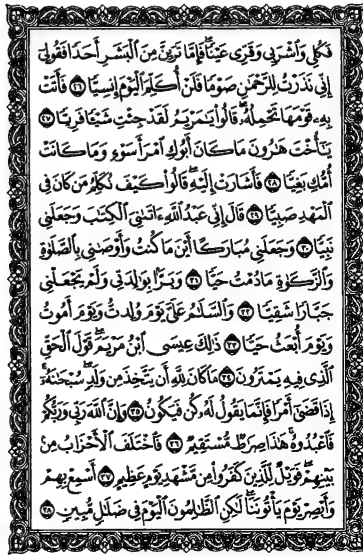 فَكُلِى وَٱشْرَبِى وَقَرِّى عَيْنًا ۖ فَإِمَّا تَرَيِنَّ مِنَ ٱلْبَشَرِ أَحَدًا فَقُولِىٓ
إِنِّى نَذَرْتُ لِلرَّحْمَٰنِ صَوْمًا فَلَنْ أُكَلِّمَ ٱلْيَوْمَ إِنسِيًّا ٢٦ فَأَتَتْ
بِهِۦ قَوْمَهَا تَحْمِلُهُۥ ۖ قَالُوا۟ يَٰمَرْيَمُ لَقَدْ جِئْتِ شَيْـًٔا فَرِيًّا ٢٧
يَٰٓأُخْتَ هَٰرُونَ مَا كَانَ أَبُوكِ ٱمْرَأَ سَوْءٍ وَمَا كَانَتْ
أُمُّكِ بَغِيًّا ٢٨ فَأَشَارَتْ إِلَيْهِ ۖ قَالُوا۟ كَيْفَ نُكَلِّمُ مَن كَانَ فِى
ٱلْمَهْدِ صَبِيًّا ٢٩ قَالَ إِنِّى عَبْدُ ٱللَّهِ ءَاتَىٰنِىَ ٱلْكِتَٰبَ وَجَعَلَنِى
نَبِيًّا ٣٠ وَجَعَلَنِى مُبَارَكًا أَيْنَ مَا كُنتُ وَأَوْصَٰنِى بِٱلصَّلَوٰةِ
وَٱلزَّكَوٰةِ مَا دُمْتُ حَيًّا ٣١ وَبَرًّۢا بِوَٰلِدَتِى وَلَمْ يَجْعَلْنِى
جَبَّارًا شَقِيًّا ٣٢ وَٱلسَّلَٰمُ عَلَىَّ يَوْمَ وُلِدتُّ وَيَوْمَ أَمُوتُ
وَيَوْمَ أُبْعَثُ حَيًّا ٣٣ ذَٰلِكَ عِيسَى ٱبْنُ مَرْيَمَ ۚ قَوْلَ ٱلْحَقِّ
ٱلَّذِى فِيهِ يَمْتَرُونَ ٣٤ مَا كَانَ لِلَّهِ أَن يَتَّخِذَ مِن وَلَدٍ ۖ سُبْحَٰنَهُۥٓ ۚ
إِذَا قَضَىٰٓ أَمْرًا فَإِنَّمَا يَقُولُ لَهُۥ كُن فَيَكُونُ ٣٥ وَإِنَّ ٱللَّهَ رَبِّى وَرَبُّكُمْ
فَٱعْبُدُوهُ ۚ هَٰذَا صِرَٰطٌ مُّسْتَقِيمٌ ٣٦ فَٱخْتَلَفَ ٱلْأَحْزَابُ مِنۢ
بَيْنِهِمْ ۖ فَوَيْلٌ لِّلَّذِينَ كَفَرُوا۟ مِن مَّشْهَدِ يَوْمٍ عَظِيمٍ ٣٧ أَسْمِعْ بِهِمْ
وَأَبْصِرْ يَوْمَ يَأْتُونَنَا ۖ لَٰكِنِ ٱلظَّٰلِمُونَ ٱلْيَوْمَ فِى ضَلَٰلٍ مُّبِينٍ ٣٨